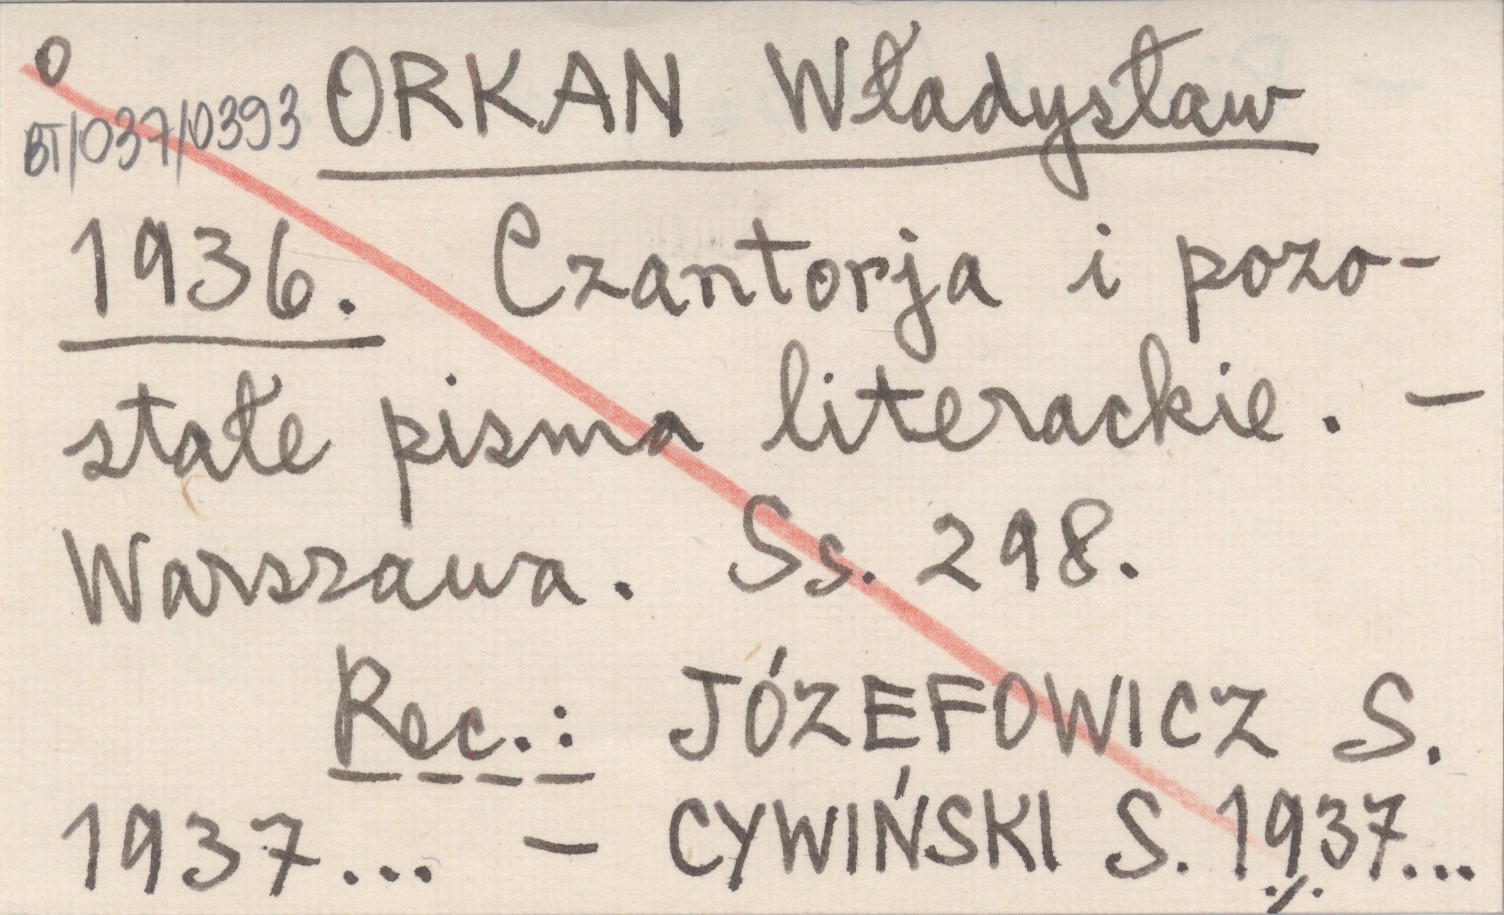 O
BT/037/0393
ORKAN Władysław
1936. Czantorja i pozo-
stałe pisma literackie. –
Warszawa. Ss. 298.
Rec.: JÓZEFOWICZ S.
1937... – CYWIŃSKI S. 1937...
./.